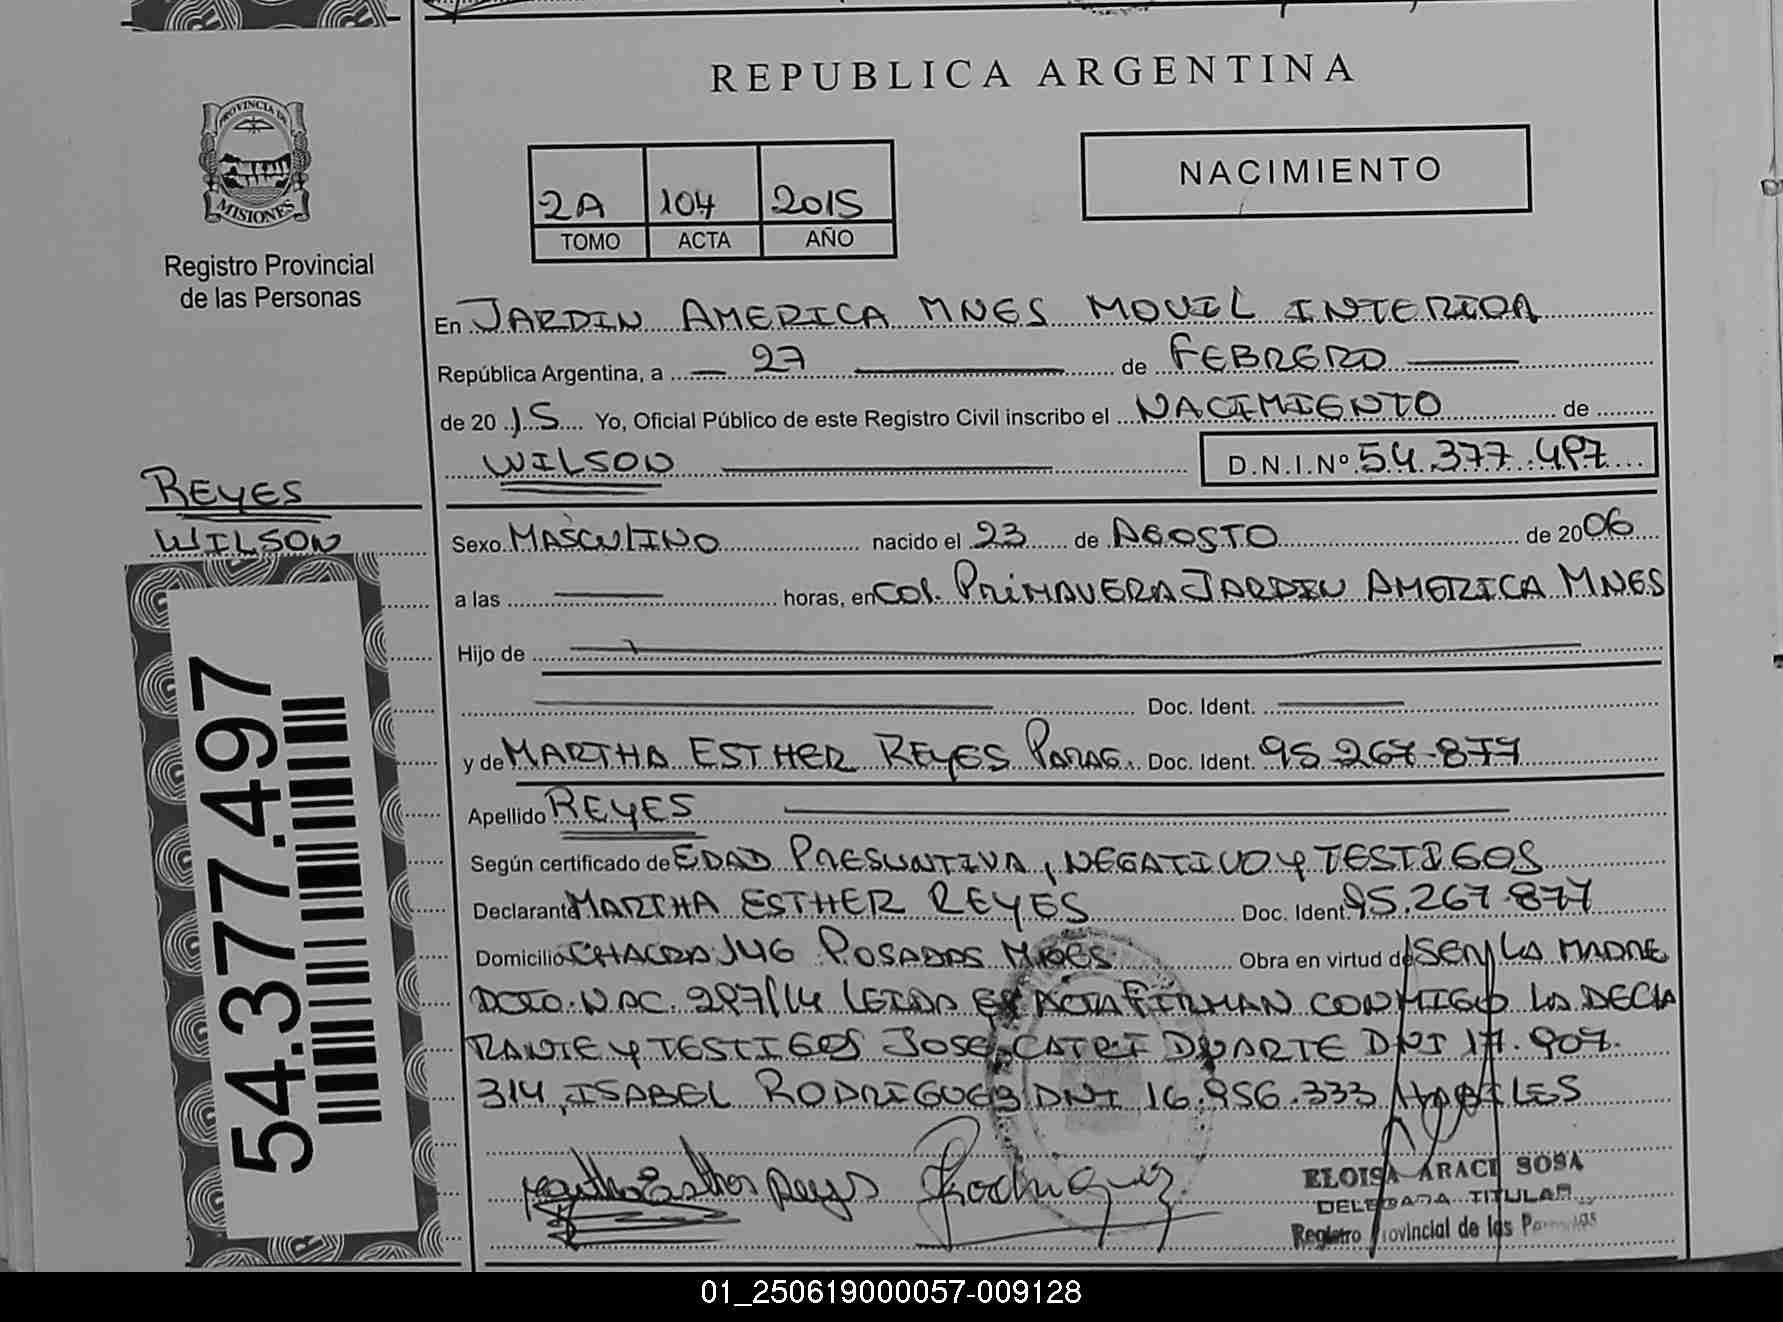 REPUBLICA ARGENTINA
PROVINCIA DE
MISIONES
Registro Provincial
de las Personas
NACIMIENTO
2A 104 2015
TOMO ACTA AÑO
En JARDIN AMERICA MNES MOVIL INTERIOR
República Argentina, a 27 de FEBRERO
de 2015 Yo, Oficial Público de este Registro Civil inscribo el NACIMIENTO de
WILSON D.N.I.Nº 54.377.497
REYES
WILSON
Sexo MASCULINO nacido el 23 de AGOSTO de 2006
a las horas, en COL. PRIMAVERA JARDIN AMERICA MNES
Hijo de
Doc. Ident.
y de MARTHA ESTHER REYES PARAG. Doc. Ident. 95.267.877
Apellido REYES
Según certificado de EDAD PRESUNTIVA, NEGATIVO Y TESTIGOS
Declarante MARTHA ESTHER REYES Doc. Ident. 95.267.877
Domicilio CHACRA 146 POSADAS MNES Obra en virtud de SER LA MADRE
DCTO. NAC. 297/14 LEIDA EL ACTA FIRMAN CONMIGO LA DECLA
RANTE Y TESTIGOS JOSE CATRI DUARTE DNI 17.907.
314, ISABEL RODRIGUES DNI 16.956.333 HABILES
54.377.497
Martha Esther Reyes Rodriguez
ELOISA ARACI SOSA
DELEGADA TITULAR
Registro Provincial de las Personas
01_250619000057-009128